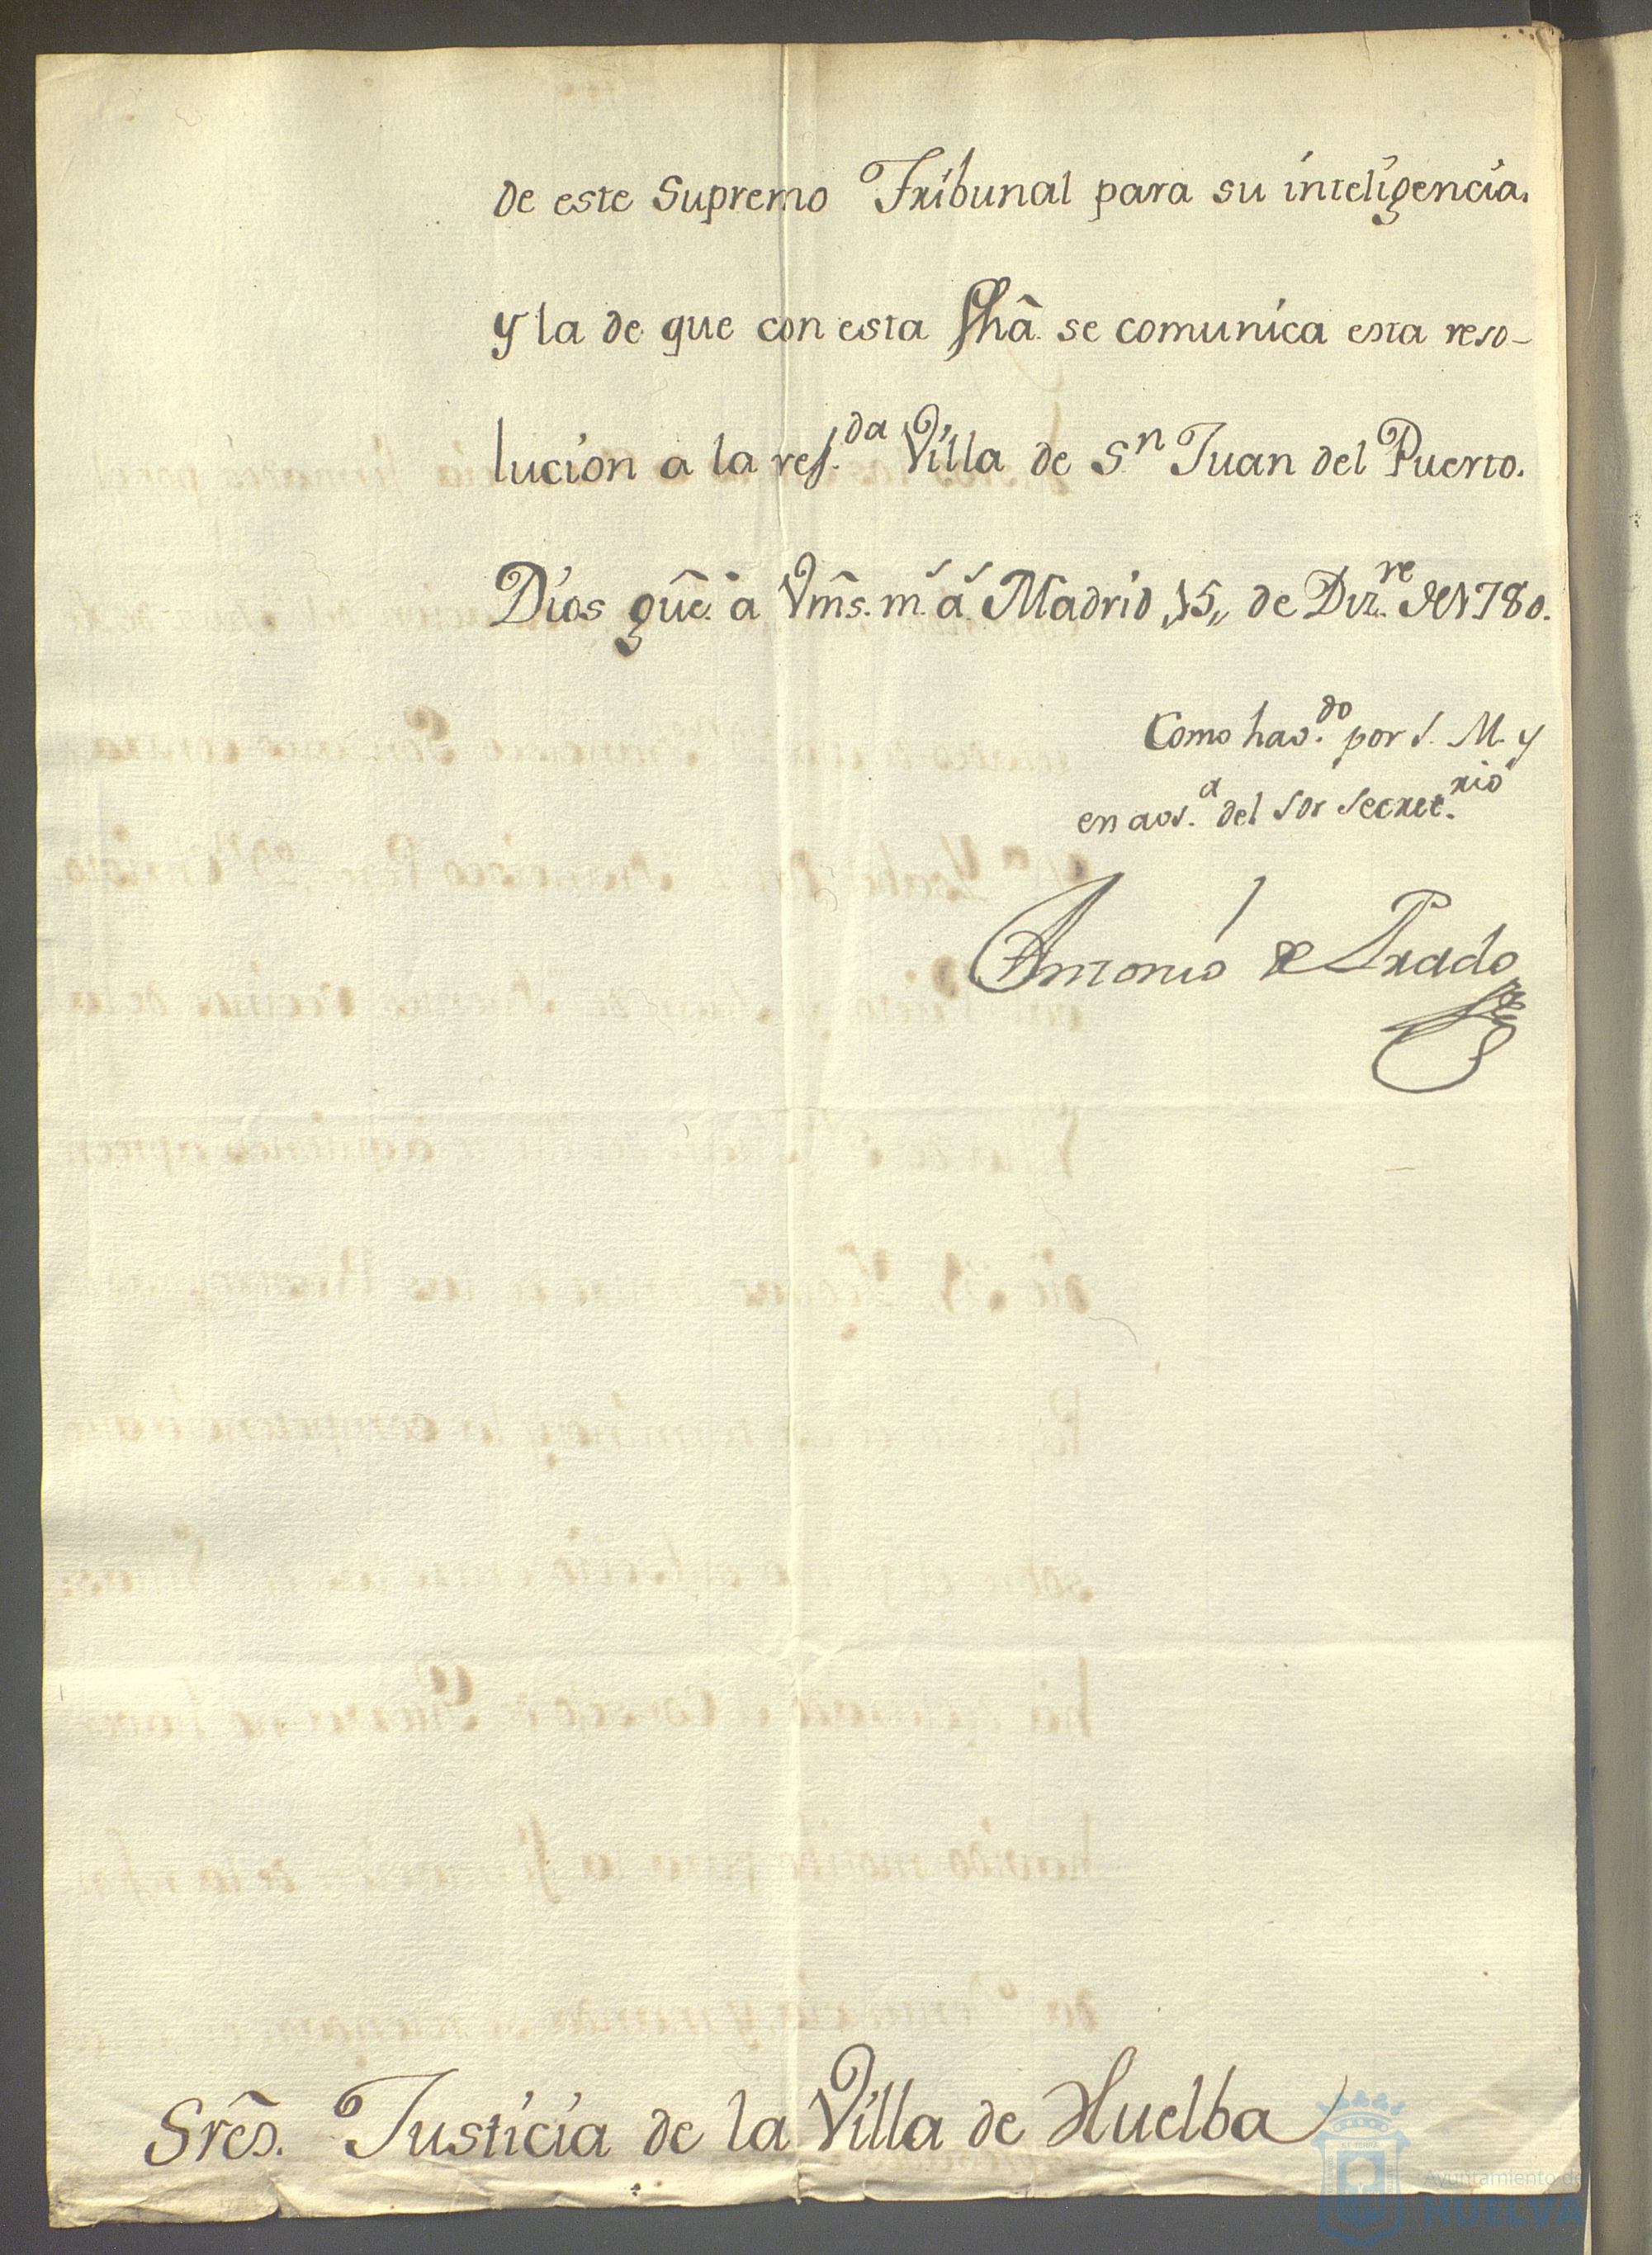 de este Supremo Tribunal para su inteligencia,
y la de que con esta fhã se comunica esta reso-
lucion a la ref.da Villa de S.n Juan del Puerto.
Dios gũe. a Vm̃s. m.s a.s Madrid 15 de Diz.re de 1780.
Como hav.do por S. M. y
en aus.a del S.or Secret.rio
Antonio de Prado
Sres. Justicia de la Villa de Huelba
Ayuntamiento de
HUELVA